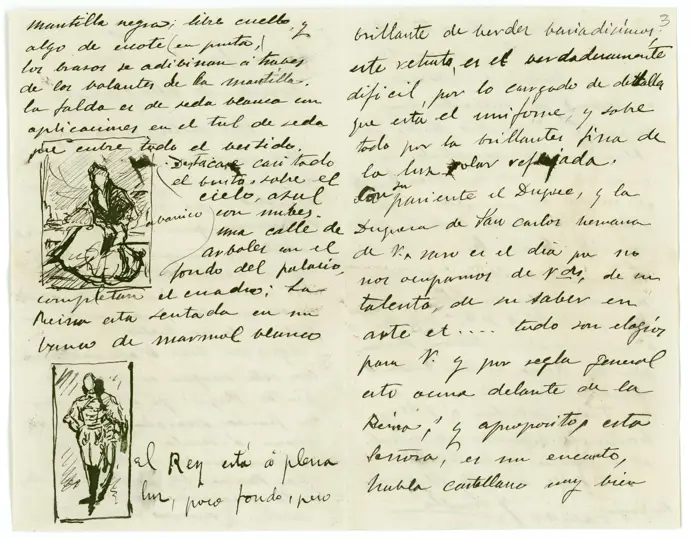 mantilla negra; libre cuello y
algo de escote (en punta,)
los brasos se adibinan a trabes
de los bolantes de la mantilla.
la falda es de seda blanca con
aplicaciones en el tul de seda
que cubre todo el bestido.
Destacase casi todo
el busto, sobre el
cielo, azul
abanico
con nubes.
una calle de
arboles en el
fondo del palacio
completan el cuadro; La
Reina esta sentada en un
banco de marmol blanco
el Rey está á plena
luz, poco fondo, pero
3
brillante de verdes bariadisimos;
este retrato, es el verdaderamente
dificil, por lo cargado de detalla
que está el uniforme, y sobre
todo por la brillantes fina de
la luz solar reflejada.
Con su pariente el Duque, y la
Duquesa de San Carlos hermana
de V., raro es el dia que no
nos ocupamos de Vds, de su
talento, de su saber en
arte et .... todo son elogios
para V. y por regla general
esto ocurre delante de la
Reina; y apropósito, esta
Señora, es un encanto,
habla castellano muy bien